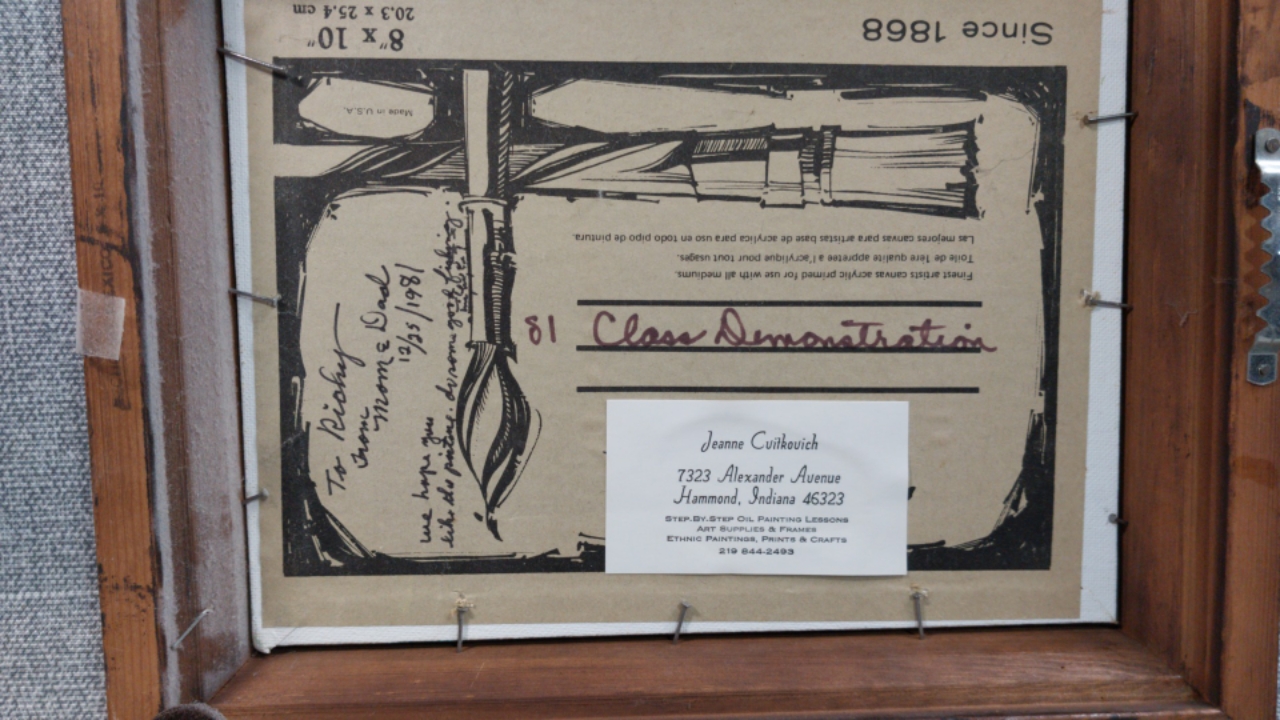 8" x 10"
20.3 x 25.4 cm
Since 1868
Made in U.S.A.
Las mejores canvas para artistas base de acrylica para uso en todo pipo de pintura.
Toile de 1ère qualite appretee a l'acrylique pour tout usages.
Finest artists canvas acrylic primed for use with all mediums.
81 Class Demonstration
To Richy
From
Mom & Dad
12/25/1981
we hope you
like the picture.
Jeanne Cvitkovich
7323 Alexander Avenue
Hammond, Indiana 46323
STEP-BY-STEP OIL PAINTING LESSONS
ART SUPPLIES & FRAMES
ETHNIC PAINTINGS, PRINTS & CRAFTS
219 844-2493